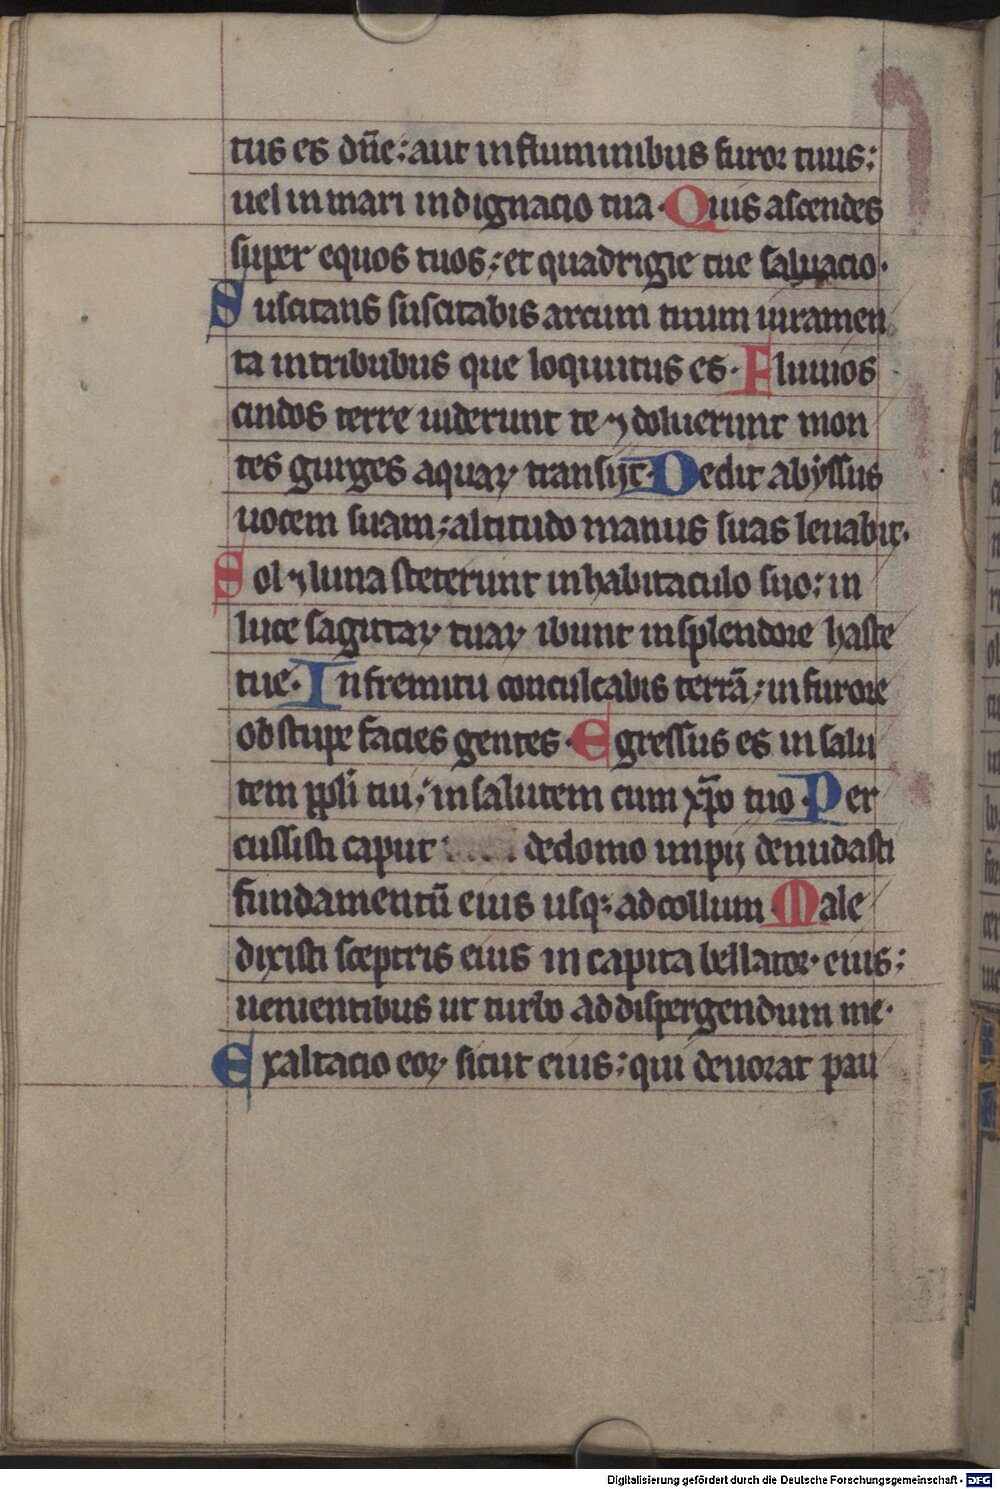 tus es dn̄e: aut in fluminibus furor tuus:
uel in mari indignacio tua. Quis ascendes
super equos tuos: et quadrigie tue saluacio.
Suscitans suscitabis arcum tuum iuramen
ta in tribubus que loqutus es. Fluuios
cindos terre uiderunt te ⁊ doluerunt mon
tes gurges aquaꝝ transijt. Dedit abyssus
uocem suam: altitudo manus suas leuabit.
Sol ⁊ luna steterunt in habitaculo suo: in
luce sagittaꝝ tuaꝝ ibunt in splendore haste
tue. In fremitu conculcabis terrā: in furore
obstupe facies gentes. Egressus es in salu
tem ppl̄i tui: in salutem cum xp̄o tuo. Per
cussisti caput de domo impij denudasti
fundamentū eius usq: ad collum. Male
dixisti sceptris eius in capita bellatoꝝ eius:
uenientibus ut turbo ad dispergendum me.
Exaltacio eoꝝ sicut eius: qui deuorat pau
Digitalisierung gefördert durch die Deutsche Forschungsgemeinschaft - DFG